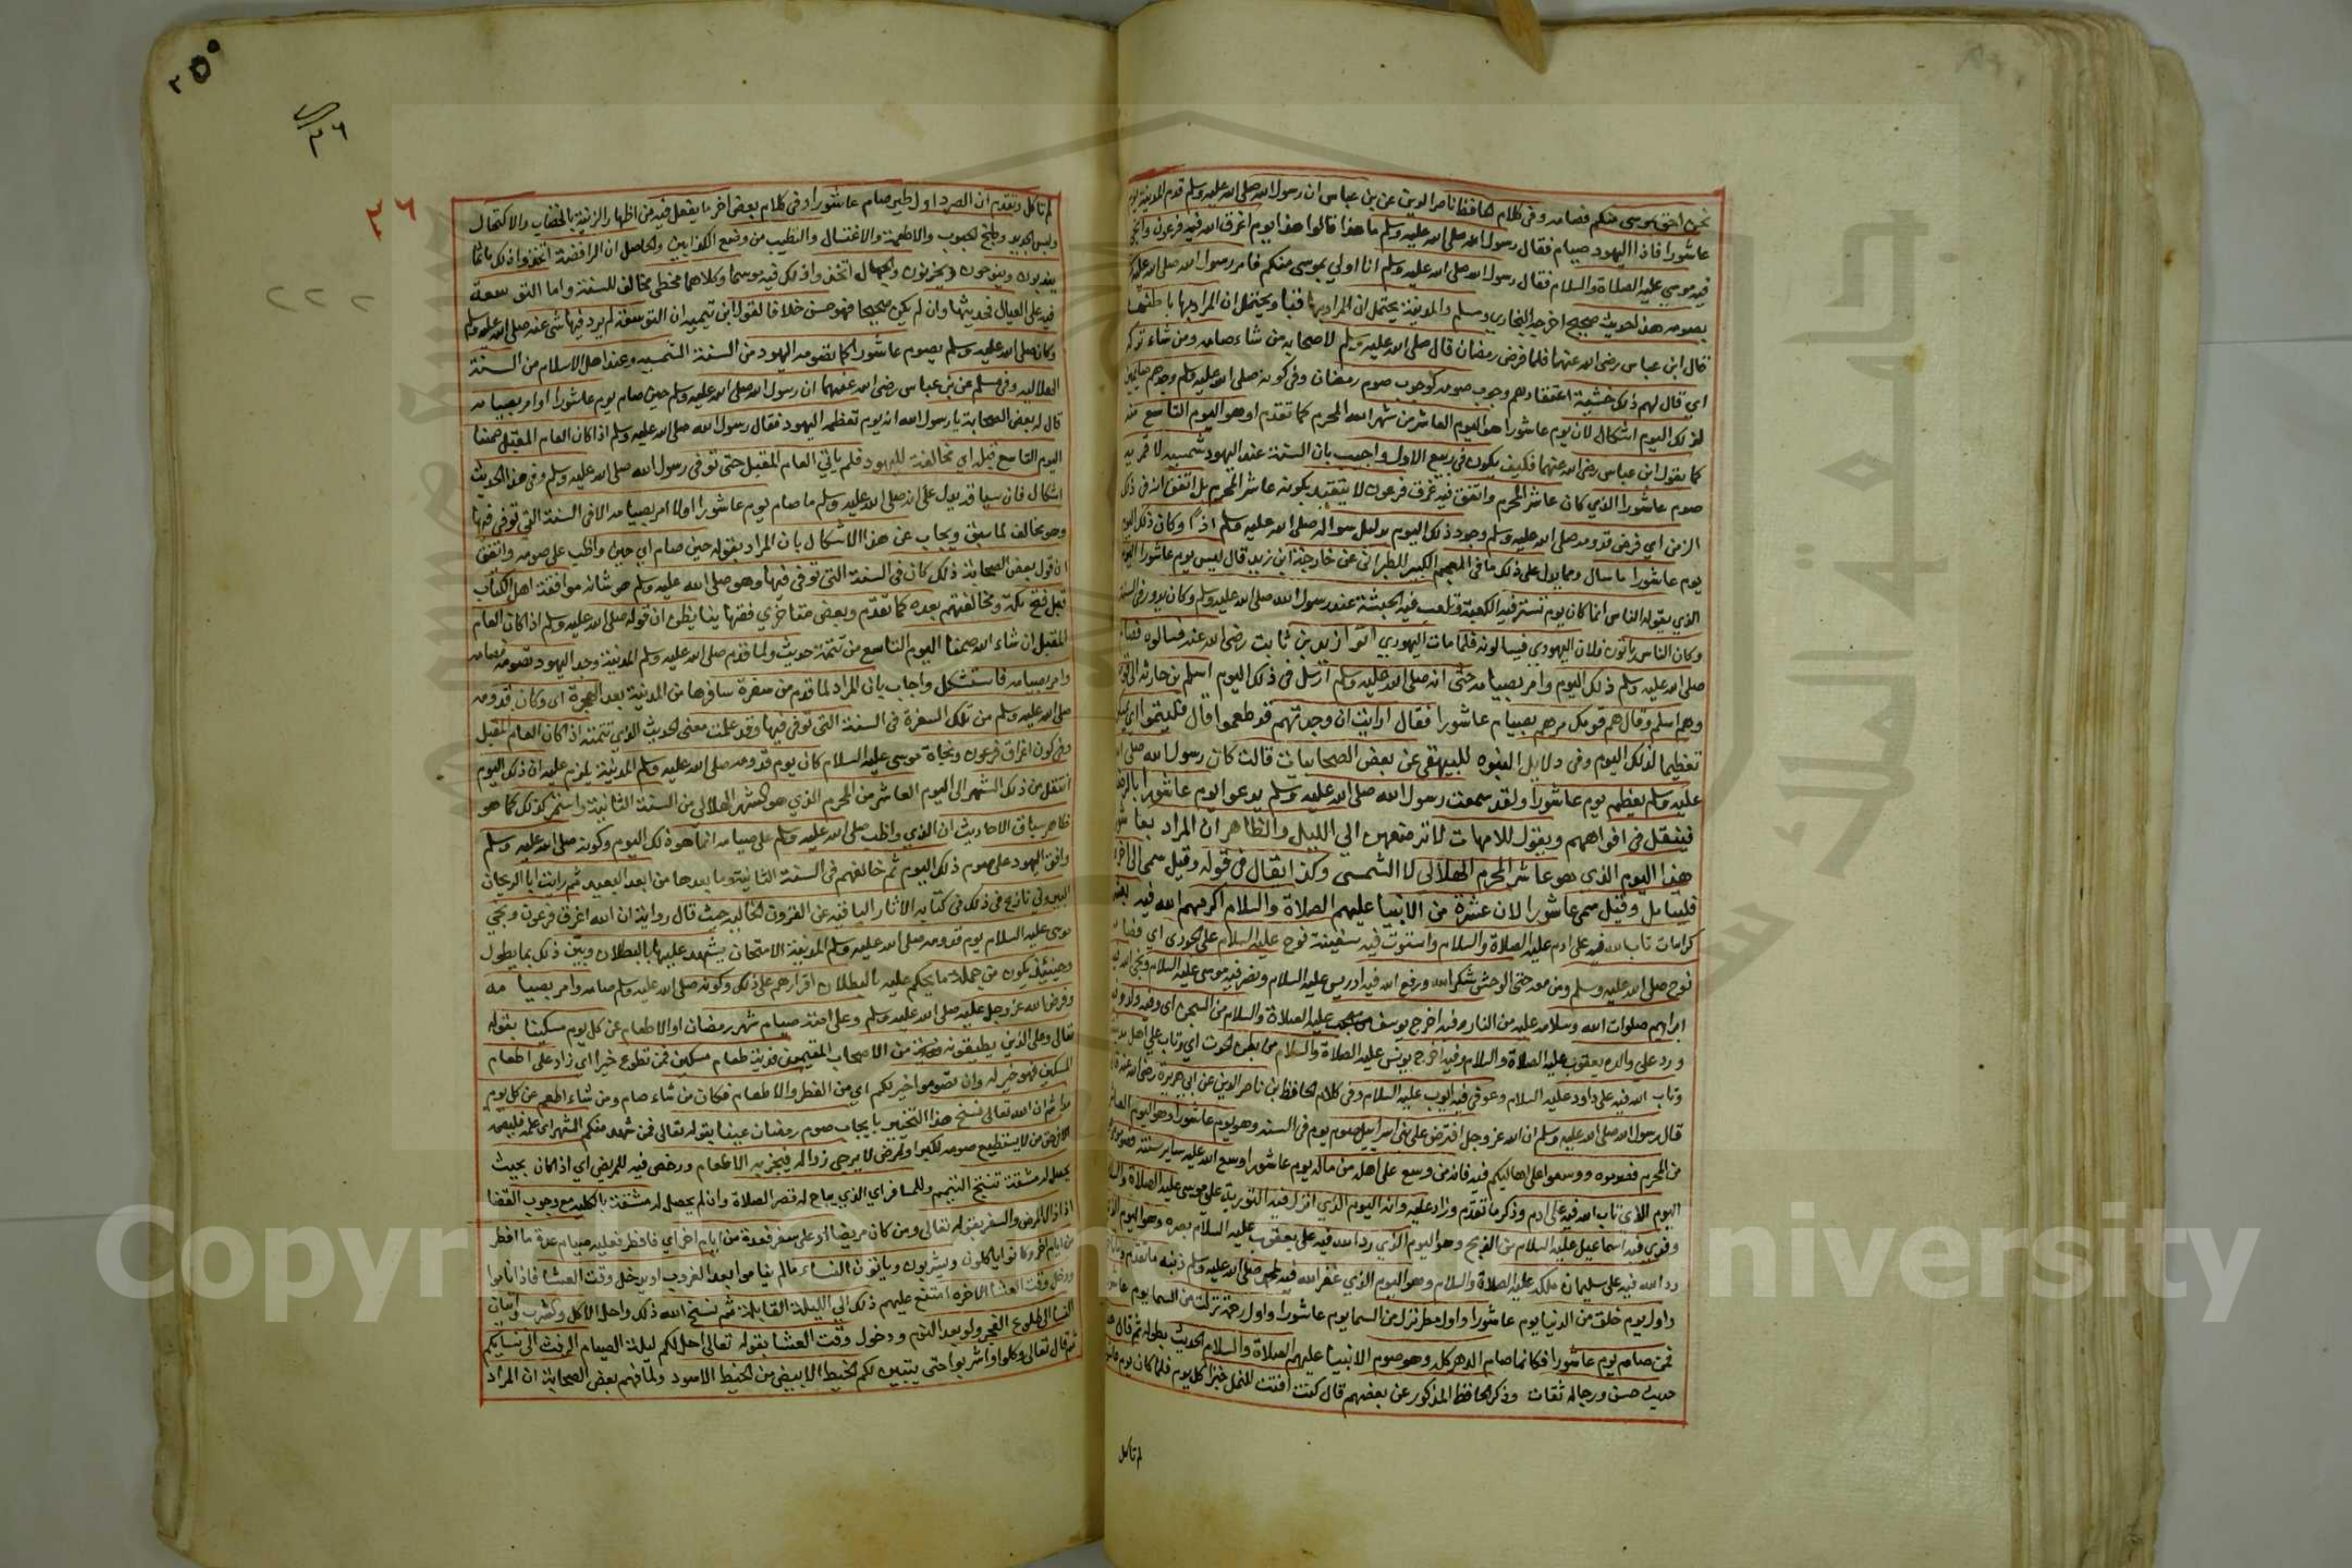 نحن احق بموسى منكم فصامه وفى كلام الحافظ ناصر الدين عن بن عباس ان رسول الله صلى الله عليه وسلم قدم المدينة يوم
عاشورا فاذا اليهود صيام فقال رسول الله صلى الله عليه وسلم ما هذا قالوا هذا يوم اغرق الله فيه فرعون وانجى
فيه موسى عليه الصلاة والسلام فقال رسول الله صلى الله عليه وسلم انا اولي بموسى منكم فامر رسول الله صلى الله عليه
بصومه هذا لحديث صحيح اخرجه البخاري ومسلم والمدينة يحتمل ان المراد بها قبا ويحتمل ان المراد بها باطنها
قال ابن عباس رضى الله عنهما فلما فرض رمضان قال صلى الله عليه وسلم لاصحابه من شاء صامه ومن شاء تركه
اي قال لهم ذلك خشية اعتقادهم وجوب صومه كوجوب صوم رمضان وفى كونه صلى الله عليه وسلم وجدهم صايمين
لذلك اليوم اشكال لان يوم عاشورا هو اليوم العاشر من شهر الله المحرم كما تقدم او هو اليوم التاسع منه
كما يقول ابن عباس رضى الله عنهما فكيف يكون فى ربيع الاول واجيب بان السنة عند اليهود شمسيه لا قمريه
صوم عاشورا الذي كان عاشر المحرم واتفق فيه غرق فرعون لا يتقيد بكونه عاشر المحرم بل اتفق انه فى ذلك
الزمن اي فرض قدومه صلى الله عليه وسلم وجود ذلك اليوم بدليل سواله صلى الله عليه وسلم اذ لو كان ذلك اليوم
يوم عاشورا ما سال ومما يدل على ذلك ما فى المعجم الكبير للطبرانى عن خارجة ابن زيد قال ليس يوم عاشورا اليوم
الذي يقوله الناس انما كان يوم تستر فيه الكعبة وتلعب فيه الحبشة عند رسول الله صلى الله عليه وسلم وكان يدور فى السنة
وكان الناس ياتون فلان اليهودي فيسالونه فلما مات اليهودي اتوا زيد بن ثابت رضى الله عنه فسالوه فصام
صلى الله عليه وسلم ذلك اليوم وامر بصيامه حتى انه صلى الله عليه وسلم ارسل فى ذلك اليوم اسلم بن حارثه الى قومه
وهم اسلم وقال مر قومك مرهم بصيام عاشورا فقال ارايت ان وجدتهم قد طعموا قال فليتموا اي
تعظيما لذلك اليوم وفى دلايل النبوه للبيهقى عن بعض الصحابيات قالت كان رسول الله صلى الله
عليه وسلم يعظم يوم عاشورا ولقد سمعت رسول الله صلى الله عليه وسلم يدعو ايوم عاشورا بالرضعا
فيتفل فى افواههم ويقول للامهات لا ترضعهن الي الليل والظاهر ان المراد بعاشورا
هذا اليوم الذى هو عاشر المحرم الهلالى لا الشمسى وكذا يقال فى قوله وقيل سمى الى اخره
فليتامل وقيل سمى عاشورا لان عشرة من الانبيا عليهم الصلاة والسلام اكرمهم الله فيه بعشر
كرامات تاب الله فيه على ادم عليه الصلاة والسلام واستوت فيه سفينة نوح عليه السلام على الجودى اي فصامه
نوح صلى الله عليه وسلم ومن معه حتى الوحش شكرا لله ورفع الله فيه ادريس عليه السلام ونصر فيه موسى عليه السلام ونجى الله فيه
ابراهيم صلوات الله وسلامه عليه من النار وفيه اخرج يوسف عليه الصلاة والسلام من السجن اي وفيه ولد
ورد على والده يعقوب عليه الصلاة والسلام وفيه اخرج يونس عليه الصلاة والسلام من بطن الحوت اي وتاب على اهل مدينته
وتاب الله فيه على داود عليه السلام وعوفى فيه ايوب عليه السلام وفى كلام الحافظ بن ناصر الدين عن ابى هريرة رضى الله عنه
قال رسول الله صلى الله عليه وسلم ان الله عز وجل افترض على بنى اسراييل صوم يوم فى السنه وهو يوم عاشورا وهو اليوم العاشر
من المحرم فصوموه ووسعوا على اهاليكم فيه فانه من وسع على اهله من ماله يوم عاشورا وسع الله عليه ساير سنته
اليوم الذى تاب الله فيه على ادم وذكر ما تقدم وزاد عليه وانه اليوم الذي انزل فيه التورية على موسى عليه الصلاة والسلام
وفدي فيه اسماعيل عليه السلام من الذبح وهو اليوم الذي رد الله فيه على يعقوب عليه السلام بصره وهو اليوم الذى
رد الله فيه على سليمان ملكه عليه الصلاة والسلام وهو اليوم الذي غفر الله فيه لمحمد صلى الله عليه وسلم ذنبه ما تقدم وما تاخر
واول يوم خلق من الدنيا يوم عاشورا واول مطر نزل من السما يوم عاشورا واول رحمة نزلت من السما يوم عاشورا
فمن صام يوم عاشورا فكانما صام الدهر كله وهو صوم الانبيا عليهم الصلاة والسلام الحديث بطوله ثم قال هذا
حديث حسن ورجاله ثقات وذكر الحافظ المذكور عن بعضهم قال كنت افتت للنمل خبزا كل يوم فلما كان يوم عاشورا
لم تاكل
٢٥٠
٢٦
٢٦
٢٢٢
لم تاكل وتقدم ان الصرد اول طير صام عاشورا وفى كلام بعض اخر ما يفعل فيه من اظهار الزينة بالخضاب والاكتحال
ولبس الجديد وطبخ الحبوب والاطعمة والاغتسال والتطيب من وضع الكذابين والحاصل ان الرافضة اتخذوا ذلك ماتما
يندبون وينوحون ويحزنون والجهال اتخذوا ذلك فيه موسما وكلاهما مخطى مخالف للسنة واما التوسعة
فيه على العيال فحديثها وان لم يكن صحيحا فهو حسن خلافا لقول ابن تيمية ان التوسعة لم يرد فيها شى عنه صلى الله عليه وسلم
وكان صلى الله عليه وسلم يصوم عاشورا كما تصومه اليهود من السنة الشمسيه وعند اهل الاسلام من السنة
الهلاليه وفى مسلم عن بن عباس رضى الله عنهما ان رسول الله صلى الله عليه وسلم حين صام يوم عاشورا وامر بصيامه
قال له بعض الصحابة يا رسول الله انه يوم تعظمه اليهود فقال رسول الله صلى الله عليه وسلم اذا كان العام المقبل صمنا
اليوم التاسع قبله اي مخالفة لليهود فلم ياتي العام المقبل حتى توفى رسول الله صلى الله عليه وسلم وفى هذا الحديث
اشكال فان سياقه يدل على انه صلى الله عليه وسلم ما صام يوم عاشورا ولا امر بصيامه الا فى السنة التى توفى فيها
وهو مخالف لما سبق ويجاب عن هذا الاشكال بان المراد بقوله حين صام اي حين واظب على صومه واتفق
ان قول بعض الصحابة ذلك كان فى السنة التى توفى فيها وهو صلى الله عليه وسلم من شانه موافقة اهل الكتاب
قبل فتح مكة ومخالفتهم بعده كما تقدم وبعض متاخري فقهاينا يظن ان قوله صلى الله عليه وسلم اذا كان العام
المقبل ان شاء الله صمنا اليوم التاسع من تتمة حديث ولما قدم صلى الله عليه وسلم المدينة وجد اليهود تصومه فصامه
وامر بصيامه فاستشكل واجاب بان المراد لما قدم من سفرة سافرها من المدينة بعد الهجرة اى وكان قدومه
صلى الله عليه وسلم من تلك السفرة فى السنة التى توفى فيها وقد علمت معنى الحديث الذي تتمته اذا كان العام المقبل
وفى كون اغراق فرعون ونجاة موسى عليه السلام كان يوم قدومه صلى الله عليه وسلم المدينة يلزم عليه ان ذلك اليوم
انتقل من ذلك الشهر الى اليوم العاشر من المحرم الذي هو الشهر الهلالى من السنة الثانية واستمر كذلك كما هو
ظاهر سياق الاحاديث ان الذي واظب صلى الله عليه وسلم على صيامه انما هو ذلك اليوم وكونه صلى الله عليه وسلم
وافق اليهود على صوم ذلك اليوم ثم خالفهم فى السنة الثانية وما بعدها من ابعد البعيد ثم رايت ابا الريحان
البيرونى نازع فى ذلك فى كتابه الاثار الباقيه عن القرون الخاليه حيث قال رواية ان الله اغرق فرعون ونجى
موسى عليه السلام يوم قدومه صلى الله عليه وسلم المدينة الامتحان يشهد عليها بالبطلان وبين ذلك بما يطول
وحينئذ يكون من جملة ما يحكم عليه بالبطلان اقرارهم على ذلك وكونه صلى الله عليه وسلم صامه وامر بصيامه
وفرض الله عز وجل عليه صلى الله عليه وسلم وعلى امته صيام شهر رمضان او الاطعام عن كل يوم مسكينا بقوله
تعالى وعلى الذين يطيقونه من الاصحاب المقيمين فدية طعام مسكين فمن تطوع خيرا اي زاد على اطعام
المسكين فهو خير له وان تصوموا خير لكم اي من الفطر والاطعام فكان من شاء صام ومن شاء اطعم عن كل يوم
ثم ان الله تعالى نسخ هذا التخيير بايجاب صوم رمضان عينا بقوله تعالى فمن شهد منكم الشهر اى علمه فليصمه
الا فى حق من لا يستطيع صومه لكبر او لمرض لا يرجى زواله فيجزيه الاطعام ورخص فيه للمريض اي اذا كان بحيث
يحصل له مشقة تبيح التيمم وللمسافر اي الذي يباح له قصر الصلاة وان لم يحصل له مشقة بالكليه مع وجوب القضا
اذا زال المرض والسفر بقوله تعالى ومن كان مريضا او على سفر فعدة من ايام اخر اي فافطر فعليه صيام عدة ما افطر
من ايام اخر وكانوا ياكلون ويشربون وياتون النساء ما لم يناموا بعد الغروب او يدخل وقت العشا فاذا ناموا
ودخل وقت العشا الاخره امتنع عليهم ذلك الى الليلة القابلة ثم نسخ الله ذلك واحل الاكل والشرب واتيان
النسا الى طلوع الفجر ولو بعد النوم ودخول وقت العشا بقوله تعالى احل لكم ليلة الصيام الرفث الى نسايكم
ثم قال تعالى وكلوا واشربوا حتى يتبين لكم الخيط الابيض من الخيط الاسود ولما فهم بعض الصحابة ان المراد